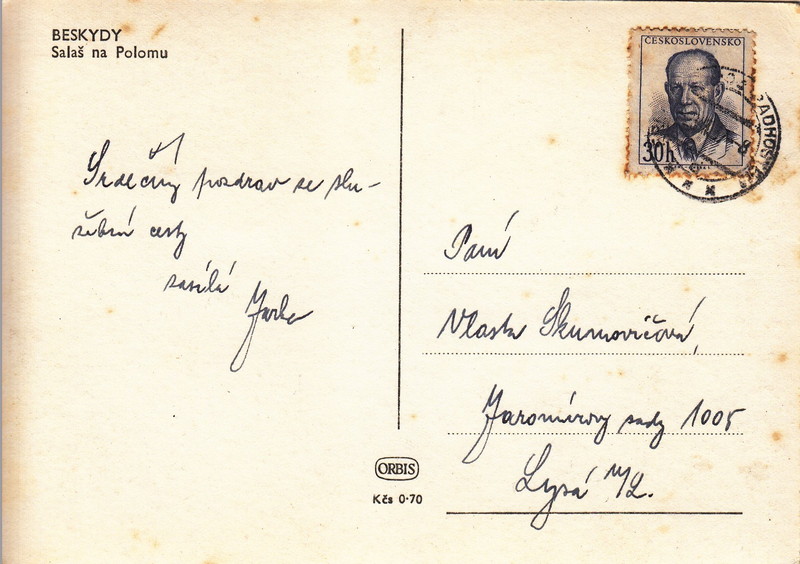 BESKYDY
Salaš na Polomu
Srdečný pozdrav ze slu-
žební cesty
zasílá
Jarka
ČESKOSLOVENSKO
30h
RADHOŠTĚM
Paní
Vlasta Skumovičová,
Jaromírovy sady 1005
Lysá n/L.
ORBIS
Kčs 0·70